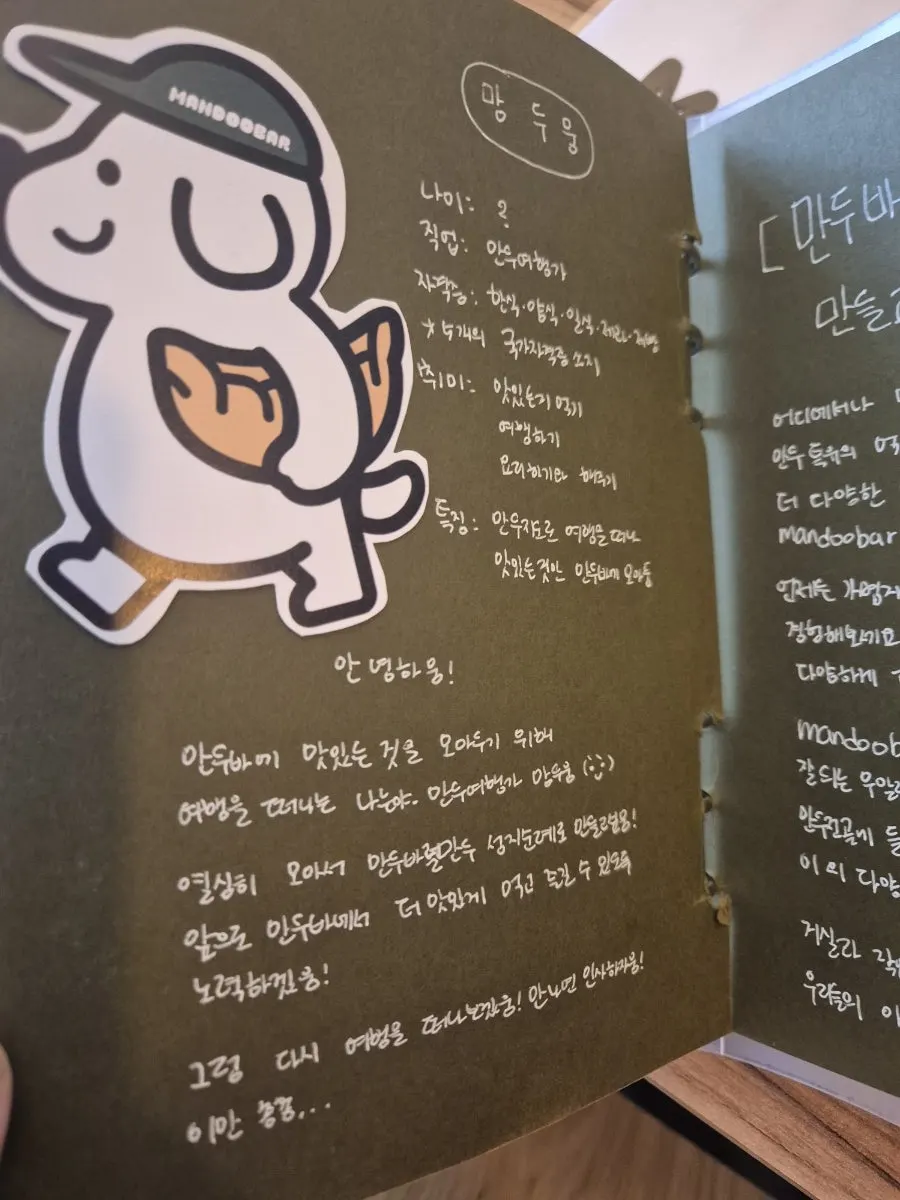 MANDOOBAR
망두웅
나이: ?
직업: 만두여행가
자격증: 한식·양식·일식·제과·제빵
* 5개의 국가자격증 소지
취미: 맛있는거 먹기
여행하기
요리하기와 해주기
특징: 만두지도로 여행을 떠나
맛있는것만 만두바에 모아둠
안녕하웅!
만두바에 맛있는 것을 모아두기 위해
여행을 떠나는 나는야. 만두여행가 망두웅
열심히 모아서 만두바를 만두 성지순례로 만들고싶웅!
앞으로 만두바에서 더 맛있게 먹고 즐길 수 있도록
노력하겠웅!
그럼 다시 여행을 떠나보겠웅! 만나면 인사하자웅!
이만 총총...
[만두바
만들고
어디에서나
만두 특유의
더 다양한
mandoobar
언제든
경험해보기도
다양하게
mandoob
잘 되는
만두전골에
이 외 다양
거실과
우리들의